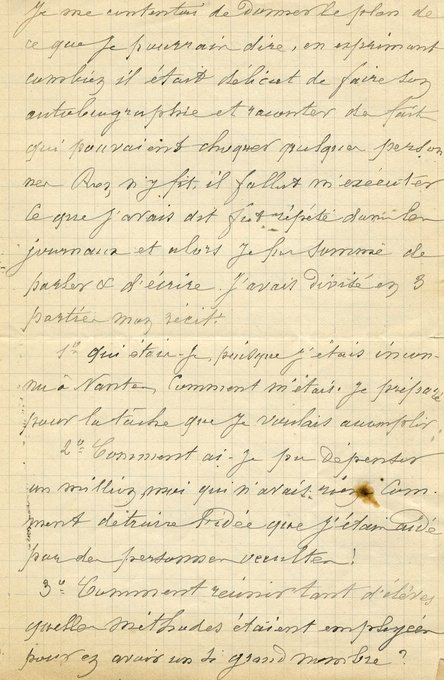 Je me contentais de donner le plan de
ce que je pourrais dire, en exprimant
combien il était délicat de faire son
autobiographie et raconter de fait
qui pouvaient choquer quelques person
nes Rien n'y fit, il fallut m'exécuter
Ce que j'avais dit fut répété dans les
journaux et alors je fus sommé de
parler & d'écrire. J'avais divisé en 3
parties mon récit.
1º qui étais-je, puisque j'étais incon-
nu à Nantes, Comment m'étais-je préparé
pour la tâche que je voulais accomplir.
2º Comment ai-je pu dépenser
un million, moi qui n'avais rien, Com-
ment détruire l'idée que j'étais aidé
par des personnes occultes!
3º Comment réunir tant d'élèves
quelles méthodes étaient employées
pour en avoir un si grand nombre?